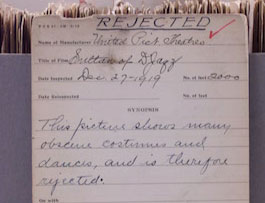 REJECTED
Name of Manufacturer United Pict. Theatres
Title of Film Sultan of Djazz
Date Inspected Dec. 27-1919 No. of feet 2000
Date Reinspected No. of feet
SYNOPSIS
This picture shows many
obscene costumes and
dances, and is therefore
rejected.